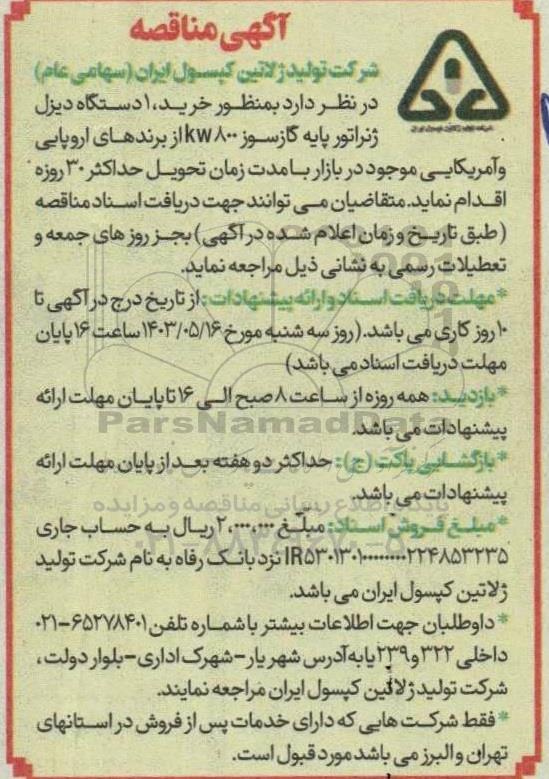 آگهی مناقصه
شرکت تولید ژلاتین کپسول ایران (سهامی عام)
در نظر دارد بمنظور خرید، ۱ دستگاه دیزل
ژنراتور پایه گازسوز ۸۰۰ kw از برندهای اروپایی
وآمریکایی موجود در بازار بامدت زمان تحویل حداکثر ۳۰ روزه
اقدام نماید. متقاضیان می توانند جهت دریافت اسناد مناقصه
(طبق تاریخ و زمان اعلام شده در آگهی) بجز روزهای جمعه و
تعطیلات رسمی به نشانی ذیل مراجعه نماید.
*مهلت دریافت اسناد و ارائه پیشنهادات: از تاریخ درج در آگهی تا
۱۰ روز کاری می باشد. (روز سه شنبه مورخ ۱۴۰۳/۰۵/۱۶ ساعت ۱۶ پایان
مهلت دریافت اسناد می باشد)
*بازدید: همه روزه از ساعت ۸ صبح الی ۱۶ تا پایان مهلت ارائه
پیشنهادات می باشد.
ParsNamadData
*بازگشایی پاکت (ج): حداکثر دو هفته بعد از پایان مهلت ارائه
پیشنهادات می باشد.
پایگاه اطلاع رسانی مناقصه و مزایده
*مبلغ فروش اسناد: مبلغ ۲,۰۰۰,۰۰۰ ریال به حساب جاری
نزد بانک رفاه به نام شرکت تولید
ژلاتین کپسول ایران می باشد.
* داوطلبان جهت اطلاعات بیشتر با شماره تلفن ۶۵۲۷۸۴۰۱-۰۲۱
داخلی ۳۲۲ و ۲۳۹ یا به آدرس شهریار- شهرک اداری- بلوار دولت،
شرکت تولید ژلاتین کپسول ایران مراجعه نمایند.
* فقط شرکت هایی که دارای خدمات پس از فروش در استانهای
تهران و البرز می باشد مورد قبول است.